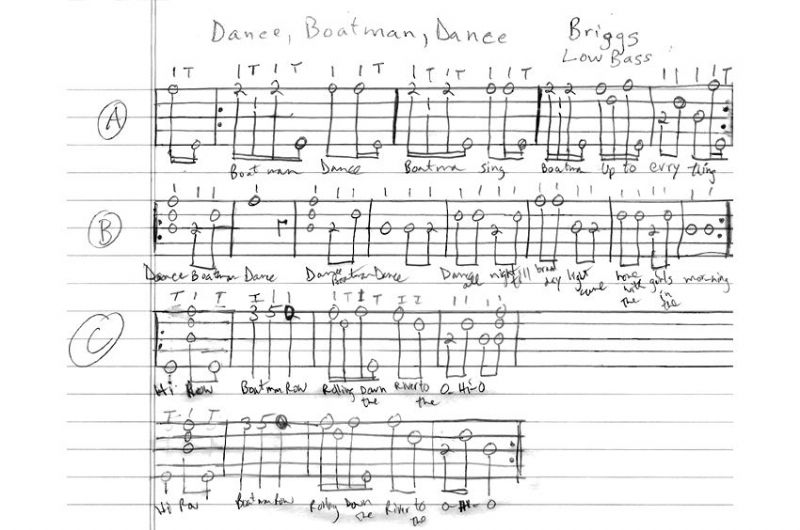 Dance, Boatman, Dance Briggs
Low Bass
I T I T I T I I T I T T I T I I I I I T
2 2 2 2 2 2 2
A
Boatman Dance Boatma Sing Boatma Up to evry thing
I I I I I I I I I I I I I I I I I I I I I
B
2 2 2 2 2 2
Dance Boatman Dance Dance Boatman Dance Dance all night till broad day light home with the girls in the morning
T I T I I I I T I T I I I I I I
C
3 5 0 2
Hi Row Boatman Row Rolling Down the River to the O Hi-O
I I T
3 5 2
Hi Row Boatman Row Rolling Down the River to the O Hi- O